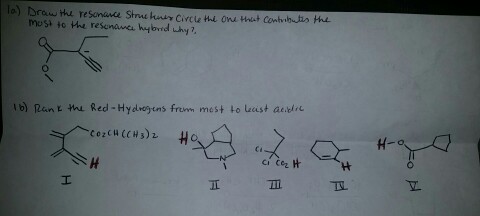 1a) Draw the resonance Structures Circle the One that Contributes the
most to the resonance hybrid why?.
O
O
-
1b) Rank the Red-Hydrogens from most to least acidic
CO2CH(CH3)2
H
I
HO
N
II
Cl
Cl CO2H
III
H
IV
H-O
O
V